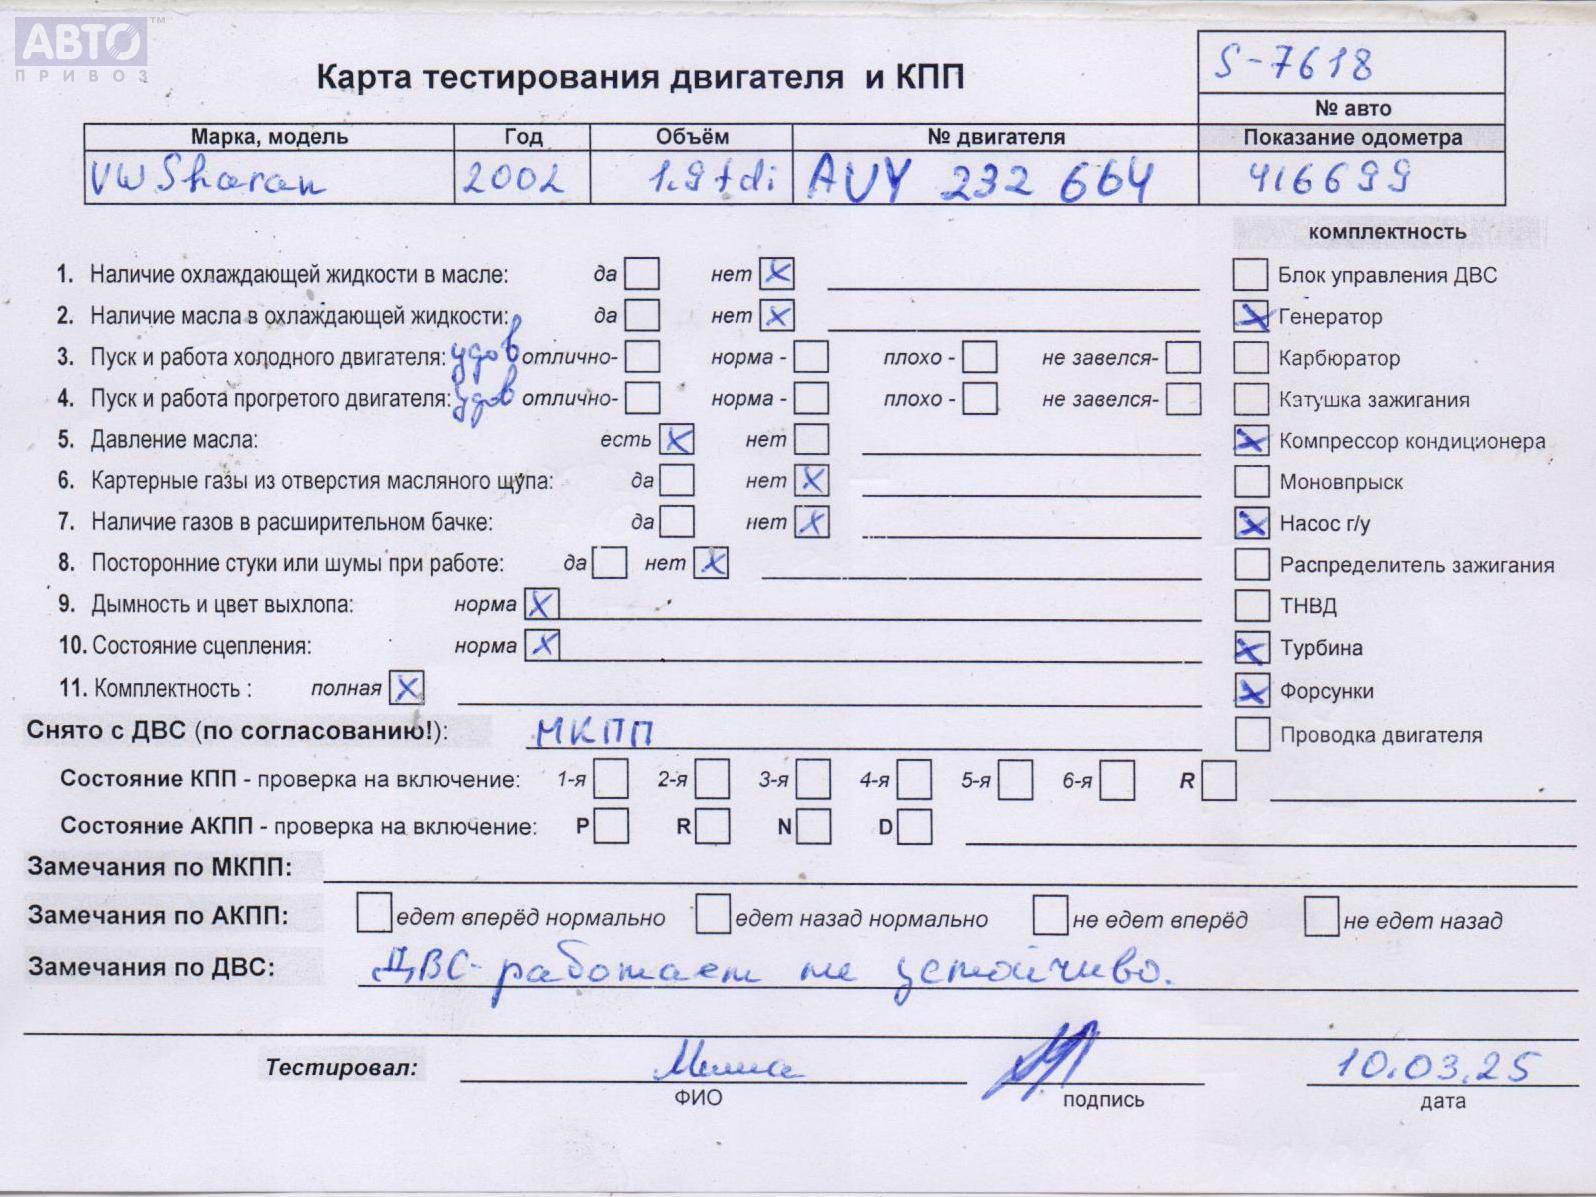 АВТО™
ПРИВОЗ
S-7618
Карта тестирования двигателя и КПП
№ авто
Марка, модель Год Объём № двигателя Показание одометра
VW Sharan 2002 1.9 tdi AUY 232 664 416699
комплектность
1. Наличие охлаждающей жидкости в масле: да нет X Блок управления ДВС
2. Наличие масла в охлаждающей жидкости: да нет X X Генератор
3. Пуск и работа холодного двигателя: удов отлично- норма - плохо - не завелся- Карбюратор
4. Пуск и работа прогретого двигателя: удов отлично- норма - плохо - не завелся- Катушка зажигания
5. Давление масла: есть X нет X Компрессор кондиционера
6. Картерные газы из отверстия масляного щупа: да нет X Моновпрыск
7. Наличие газов в расширительном бачке: да нет X X Насос г/у
8. Посторонние стуки или шумы при работе: да нет X Распределитель зажигания
9. Дымность и цвет выхлопа: норма X ТНВД
10. Состояние сцепления: норма X X Турбина
11. Комплектность : полная X X Форсунки
Снято с ДВС (по согласованию!): МКПП Проводка двигателя
Состояние КПП - проверка на включение: 1-я 2-я 3-я 4-я 5-я 6-я R
Состояние АКПП - проверка на включение: P R N D
Замечания по МКПП:
Замечания по АКПП: едет вперёд нормально едет назад нормально не едет вперёд не едет назад
Замечания по ДВС: ДВС- работает не устойчиво.
Тестировал: Миша 10.03.25
ФИО подпись дата